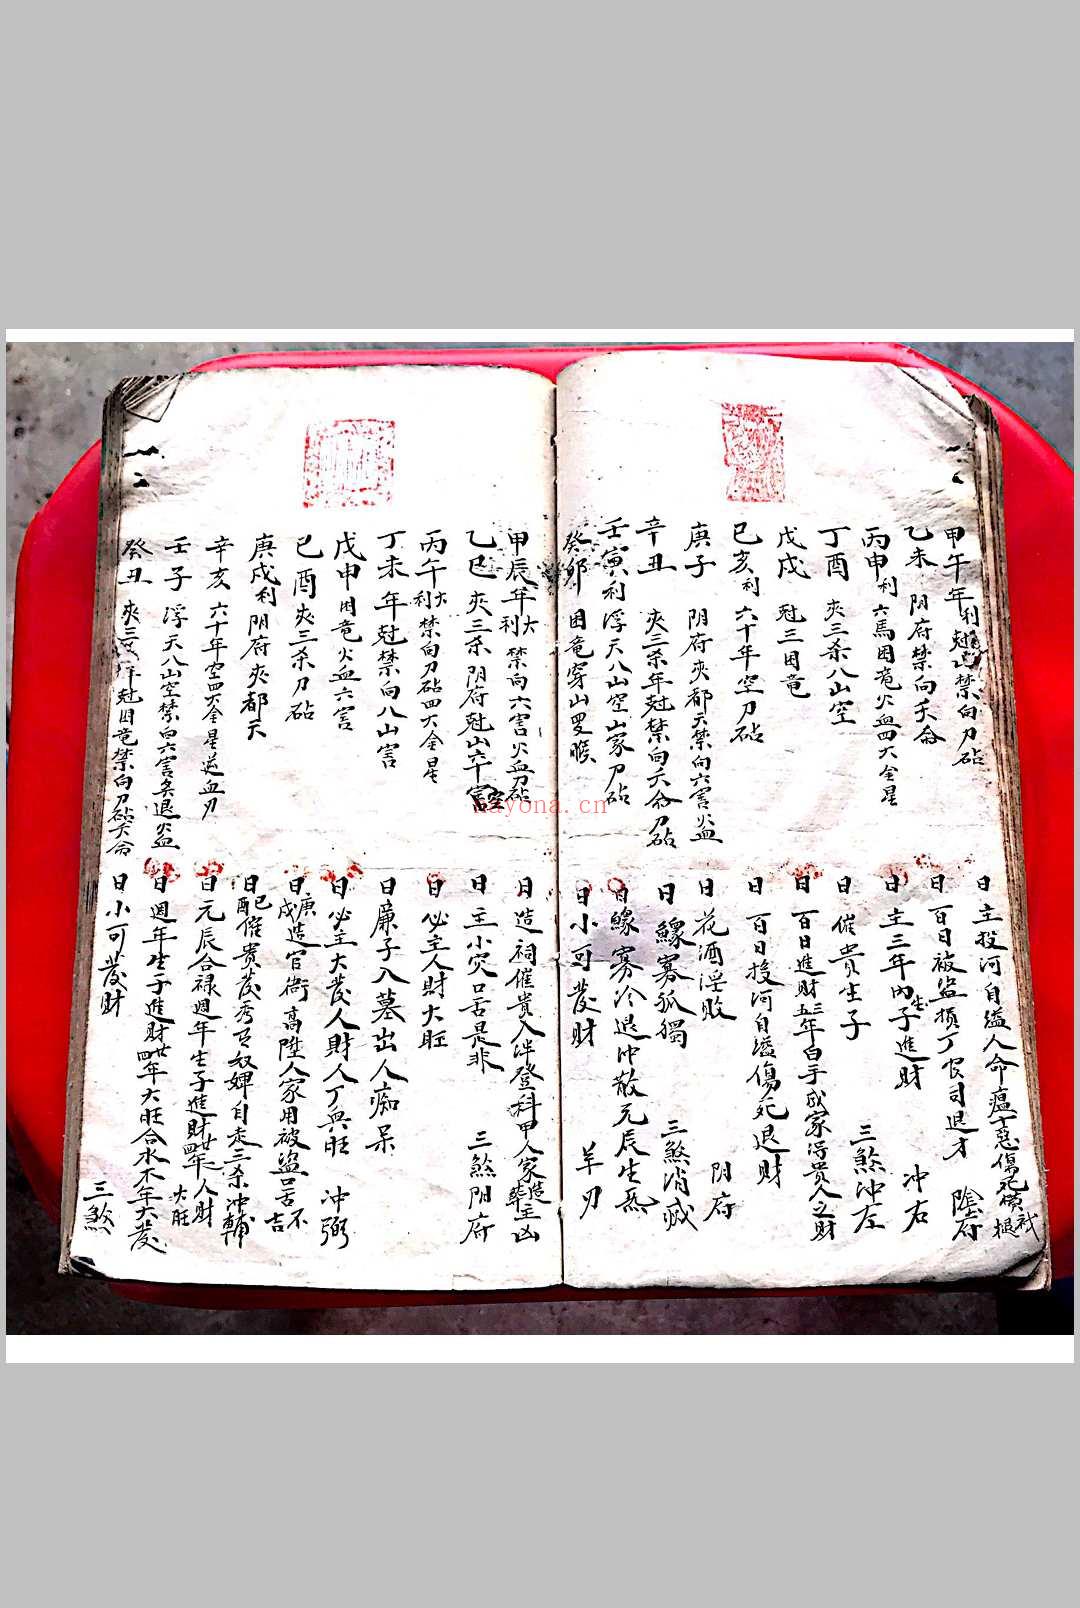 甲午年利尅山禁向刀砧
日主投河自縊人命瘟 惡傷死横
乙未 阴府禁向天命
日百日被盗損丁官司退才 陰府
丙申利 六馬困竜火血四大金星
日主三年内生子進財 冲右
丁酉 夾三杀八山空
日催貴生子 三煞冲左
戊戌 尅三困竜
日百日進財三五年白手成家得貴人之財
己亥利 六十年空刀砧
日百日投河自縊傷死退財
庚子 阴府夾都天禁向六害火血
日花酒淫敗 阴府
辛丑 夾三杀年尅禁向天命刀砧
日鰥寡孤獨 三煞消滅
壬寅利浮天八山空山家刀砧
日鰥寡冷退冲散元辰生
癸卯 困竜穿山罗睺
日小可發财 羊刃
甲辰年大利 禁向六害火血刀砧
日造祠催貴入泮登科甲人家造葬主凶
乙巳夾三杀阴府尅山六十年空
日主小灾口舌是非 三煞阴府
丙午大利禁向刀砧四大金星
日必主人財大旺
丁未年尅禁向八山害
日廉子入墓出人痴呆
戊申困竜火血六害
日必主大發人財人丁興旺 冲弼
己酉夾三杀刀砧
日庚戌造官衙高陞人家用被盗口舌不吉
庚戌利阴府夾都天
日己酉催貴發秀 奴婢自走三杀冲輔
辛亥 六十年空四大金星 血刃
日元辰合禄週年生子進財廿四年人財大旺
壬子 浮天八山空禁向六害 退火血
日週年生子進財廿四年大旺合水不年大發
癸丑 夾三杀年尅困竜禁向刀砧天命
日小可發财 三煞
nayona.cn